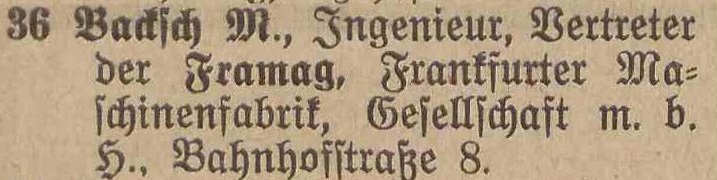 36 Backsch M., Ingenieur, Vertreter
der Framag, Frankfurter Ma-
schinenfabrik, Gesellschaft m. b.
H., Bahnhofstraße 8.